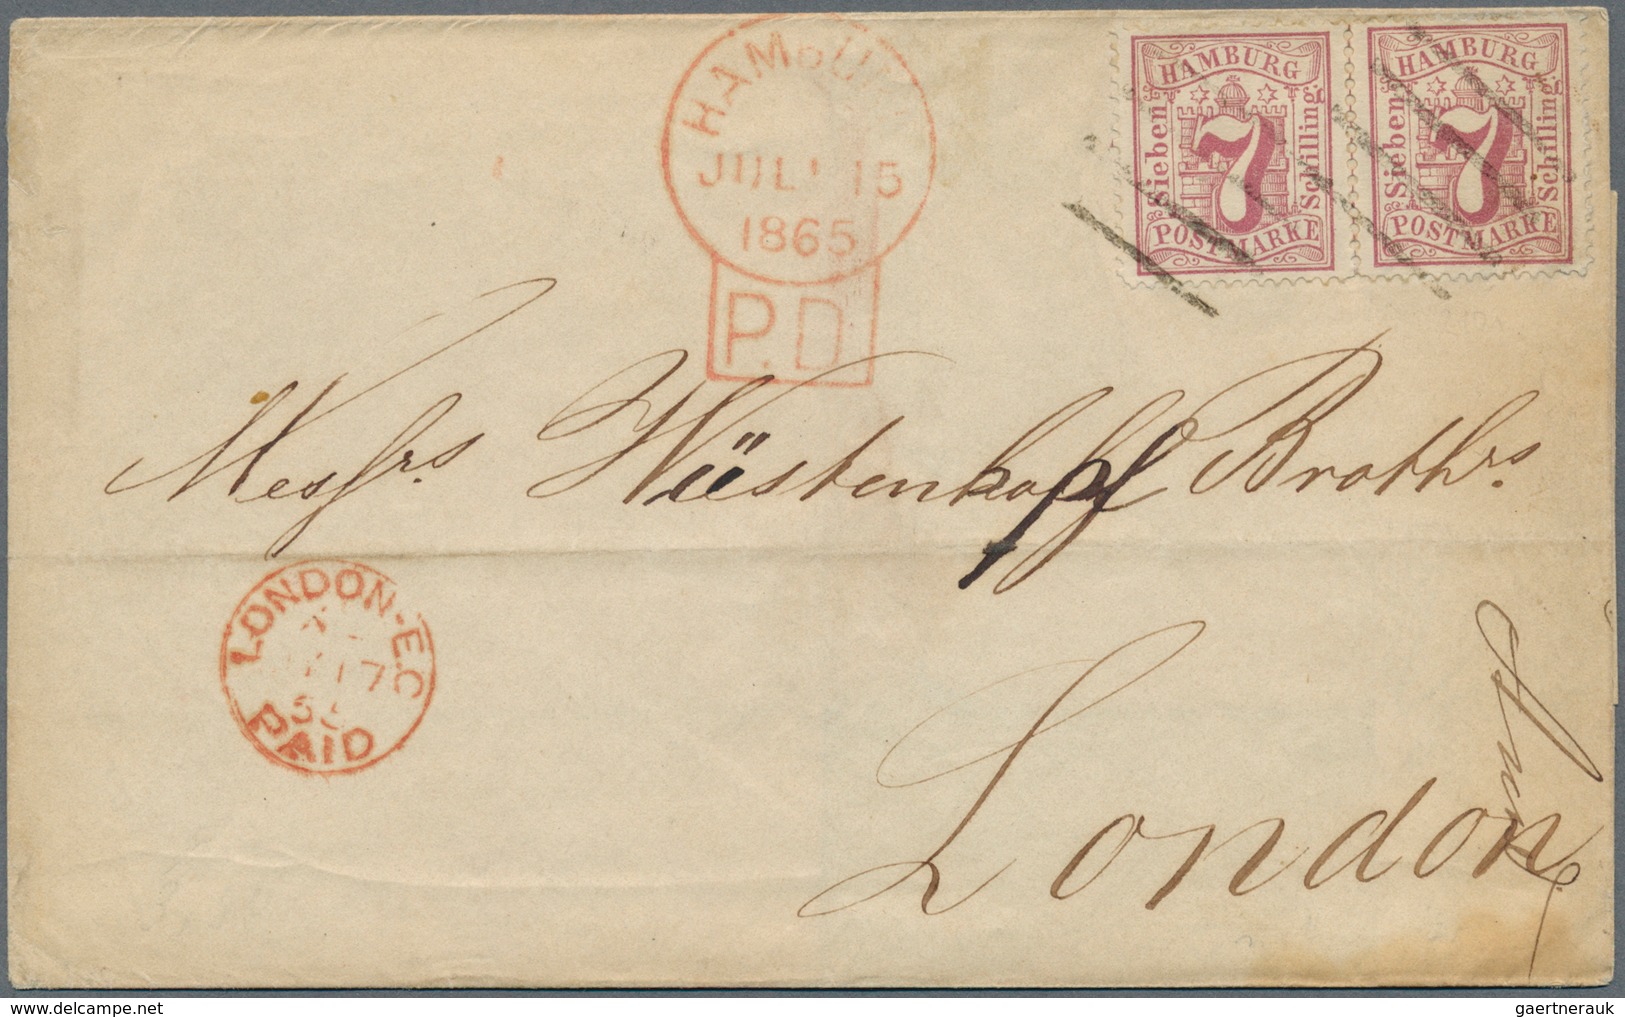 HAMBURG
JULI 15
1865
P.D
HAMBURG
Sieben
7
Schilling.
POSTMARKE
HAMBURG
Sieben
7
Schilling.
POSTMARKE
Messrs. Wüstenkopf Brothrs.
LONDON-E.C
17
PAID
London
franco
gaertnerauk